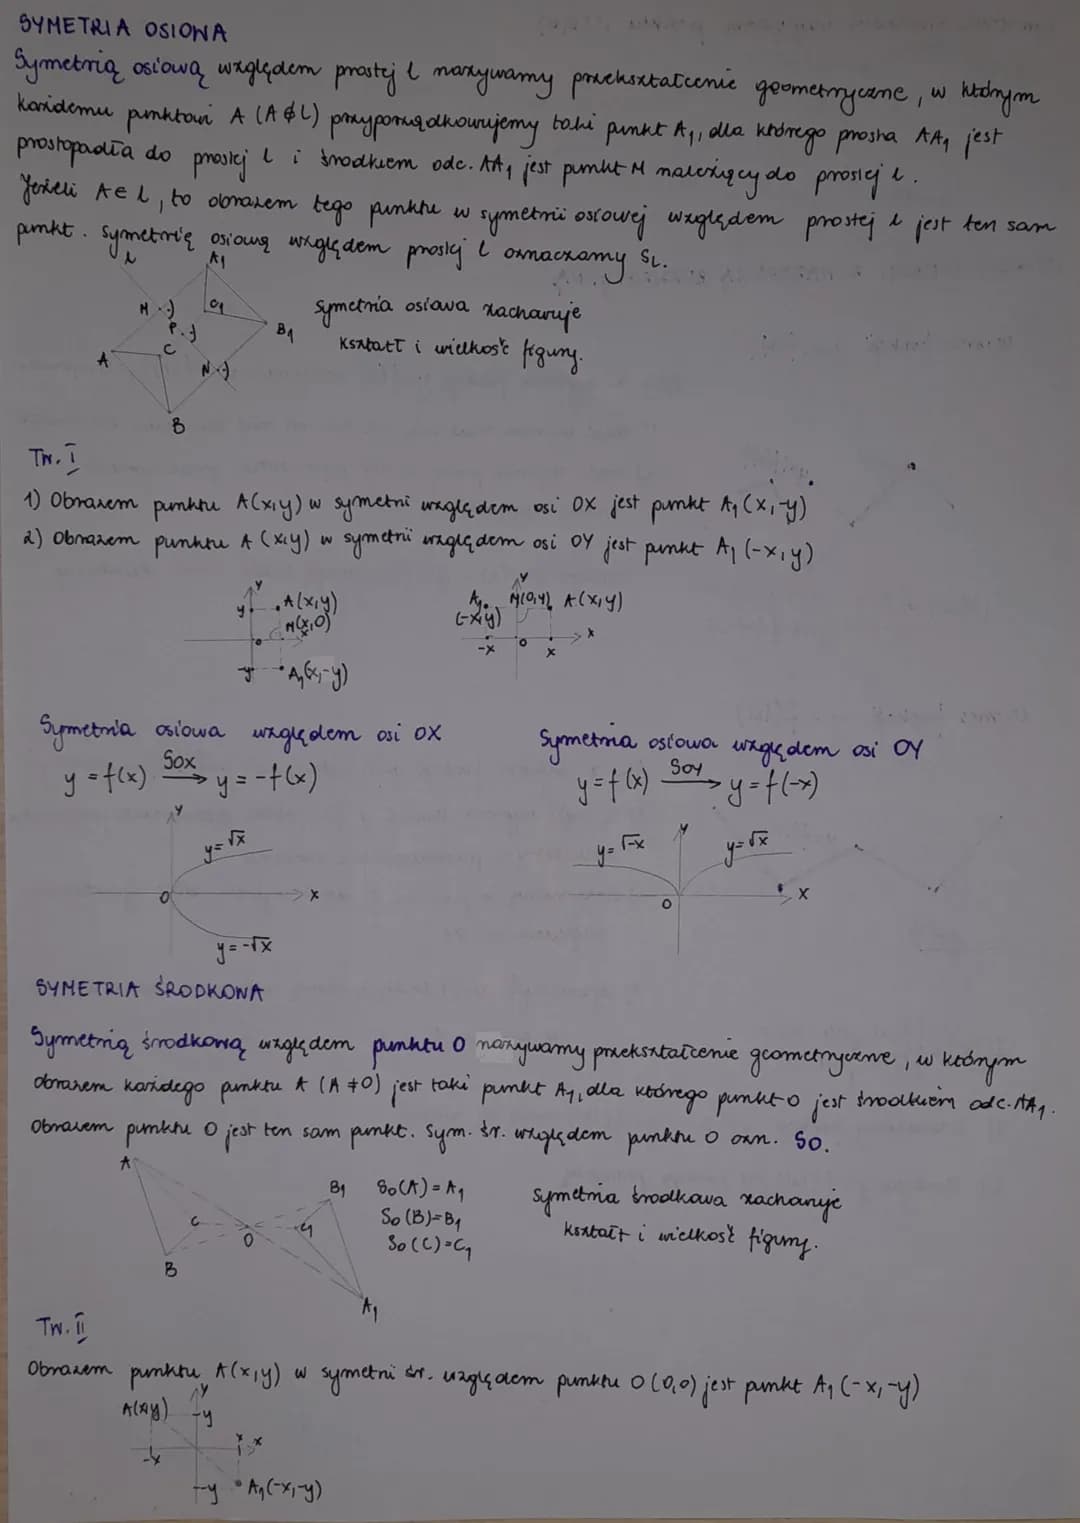 SYMETRIA OSIOWA
Symetrią osiową względem prostej l nazywamy przekształcenie geometryczne, w którym
każdemu punktowi A (A∉L) przyporządkowujemy taki punkt A₁, dla którego prosta AA₁ jest
prostopadła do prostej l i środkiem odc. AA₁ jest punkt M należący do prostej l.
Jeżeli A∈L, to obrazem tego punktu w symetrii osiowej względem prostej l jest ten sam
punkt. Symetrię osiową względem prostej l oznaczamy S_L.
L A₁
M C₁
P B₁
A C N
B
Symetria osiowa zachowuje
kształt i wielkość figury.
Tw. I
1) Obrazem punktu A(x,y) w symetrii względem osi OX jest punkt A₁(x,-y)
2) Obrazem punktu A(x,y) w symetrii względem osi OY jest punkt A₁(-x,y)
y
y A(x,y)
M(x,0)
0 x
-y A₁(x,-y)
y
A₁ M(0,y) A(x,y)
(-x,y)
-x 0 x x
Symetria osiowa względem osi OX
y=f(x) Sox → y=-f(x)
y
y=√x
0 x
y=-√x
Symetria osiowa względem osi OY
y=f(x) Soy → y=f(-x)
y=√-x y y=√x
0 x
SYMETRIA ŚRODKOWA
Symetrią środkową względem punktu O nazywamy przekształcenie geometryczne, w którym
obrazem każdego punktu A (A≠O) jest taki punkt A₁, dla którego punkt O jest środkiem odc. AA₁.
Obrazem punktu O jest ten sam punkt. Sym. śr. względem punktu O ozn. So.
A
B₁
C O C₁
B
A₁
So(A)=A₁
So(B)=B₁
So(C)=C₁
Symetria środkowa zachowuje
kształt i wielkość figury.
Tw. II
Obrazem punktu A(x,y) w symetrii śr. względem punktu O(0,0) jest punkt A₁(-x,-y)
y
A(x,y) y
x x
-x
-y A₁(-x,-y)